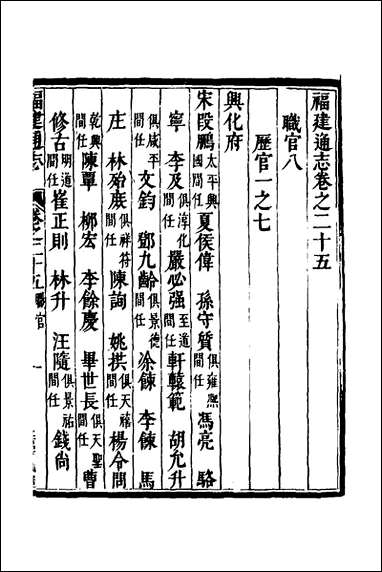 福建通志卷之二十五
職官八
歷官一之七
興化府
宋段鵬太平興國間任夏侯偉 孫守質俱雍熙間任馮亮 駱
寧 李及俱淳化間任嚴必强至道間任軒轅範 胡允升
俱咸平間任文鈞 鄧九齡俱景德間任涂鍊 李鍊 馬
庄 林殆庶俱祥符間任陳詢 姚拱俱天禧間任楊令問
乾興間任陳覃 柳宏 李餘慶 畢世長俱天聖間任曹
修古明道間任崔正則 林升 汪隨俱景祐間任錢尙
福建通志 卷之二十五職官 一